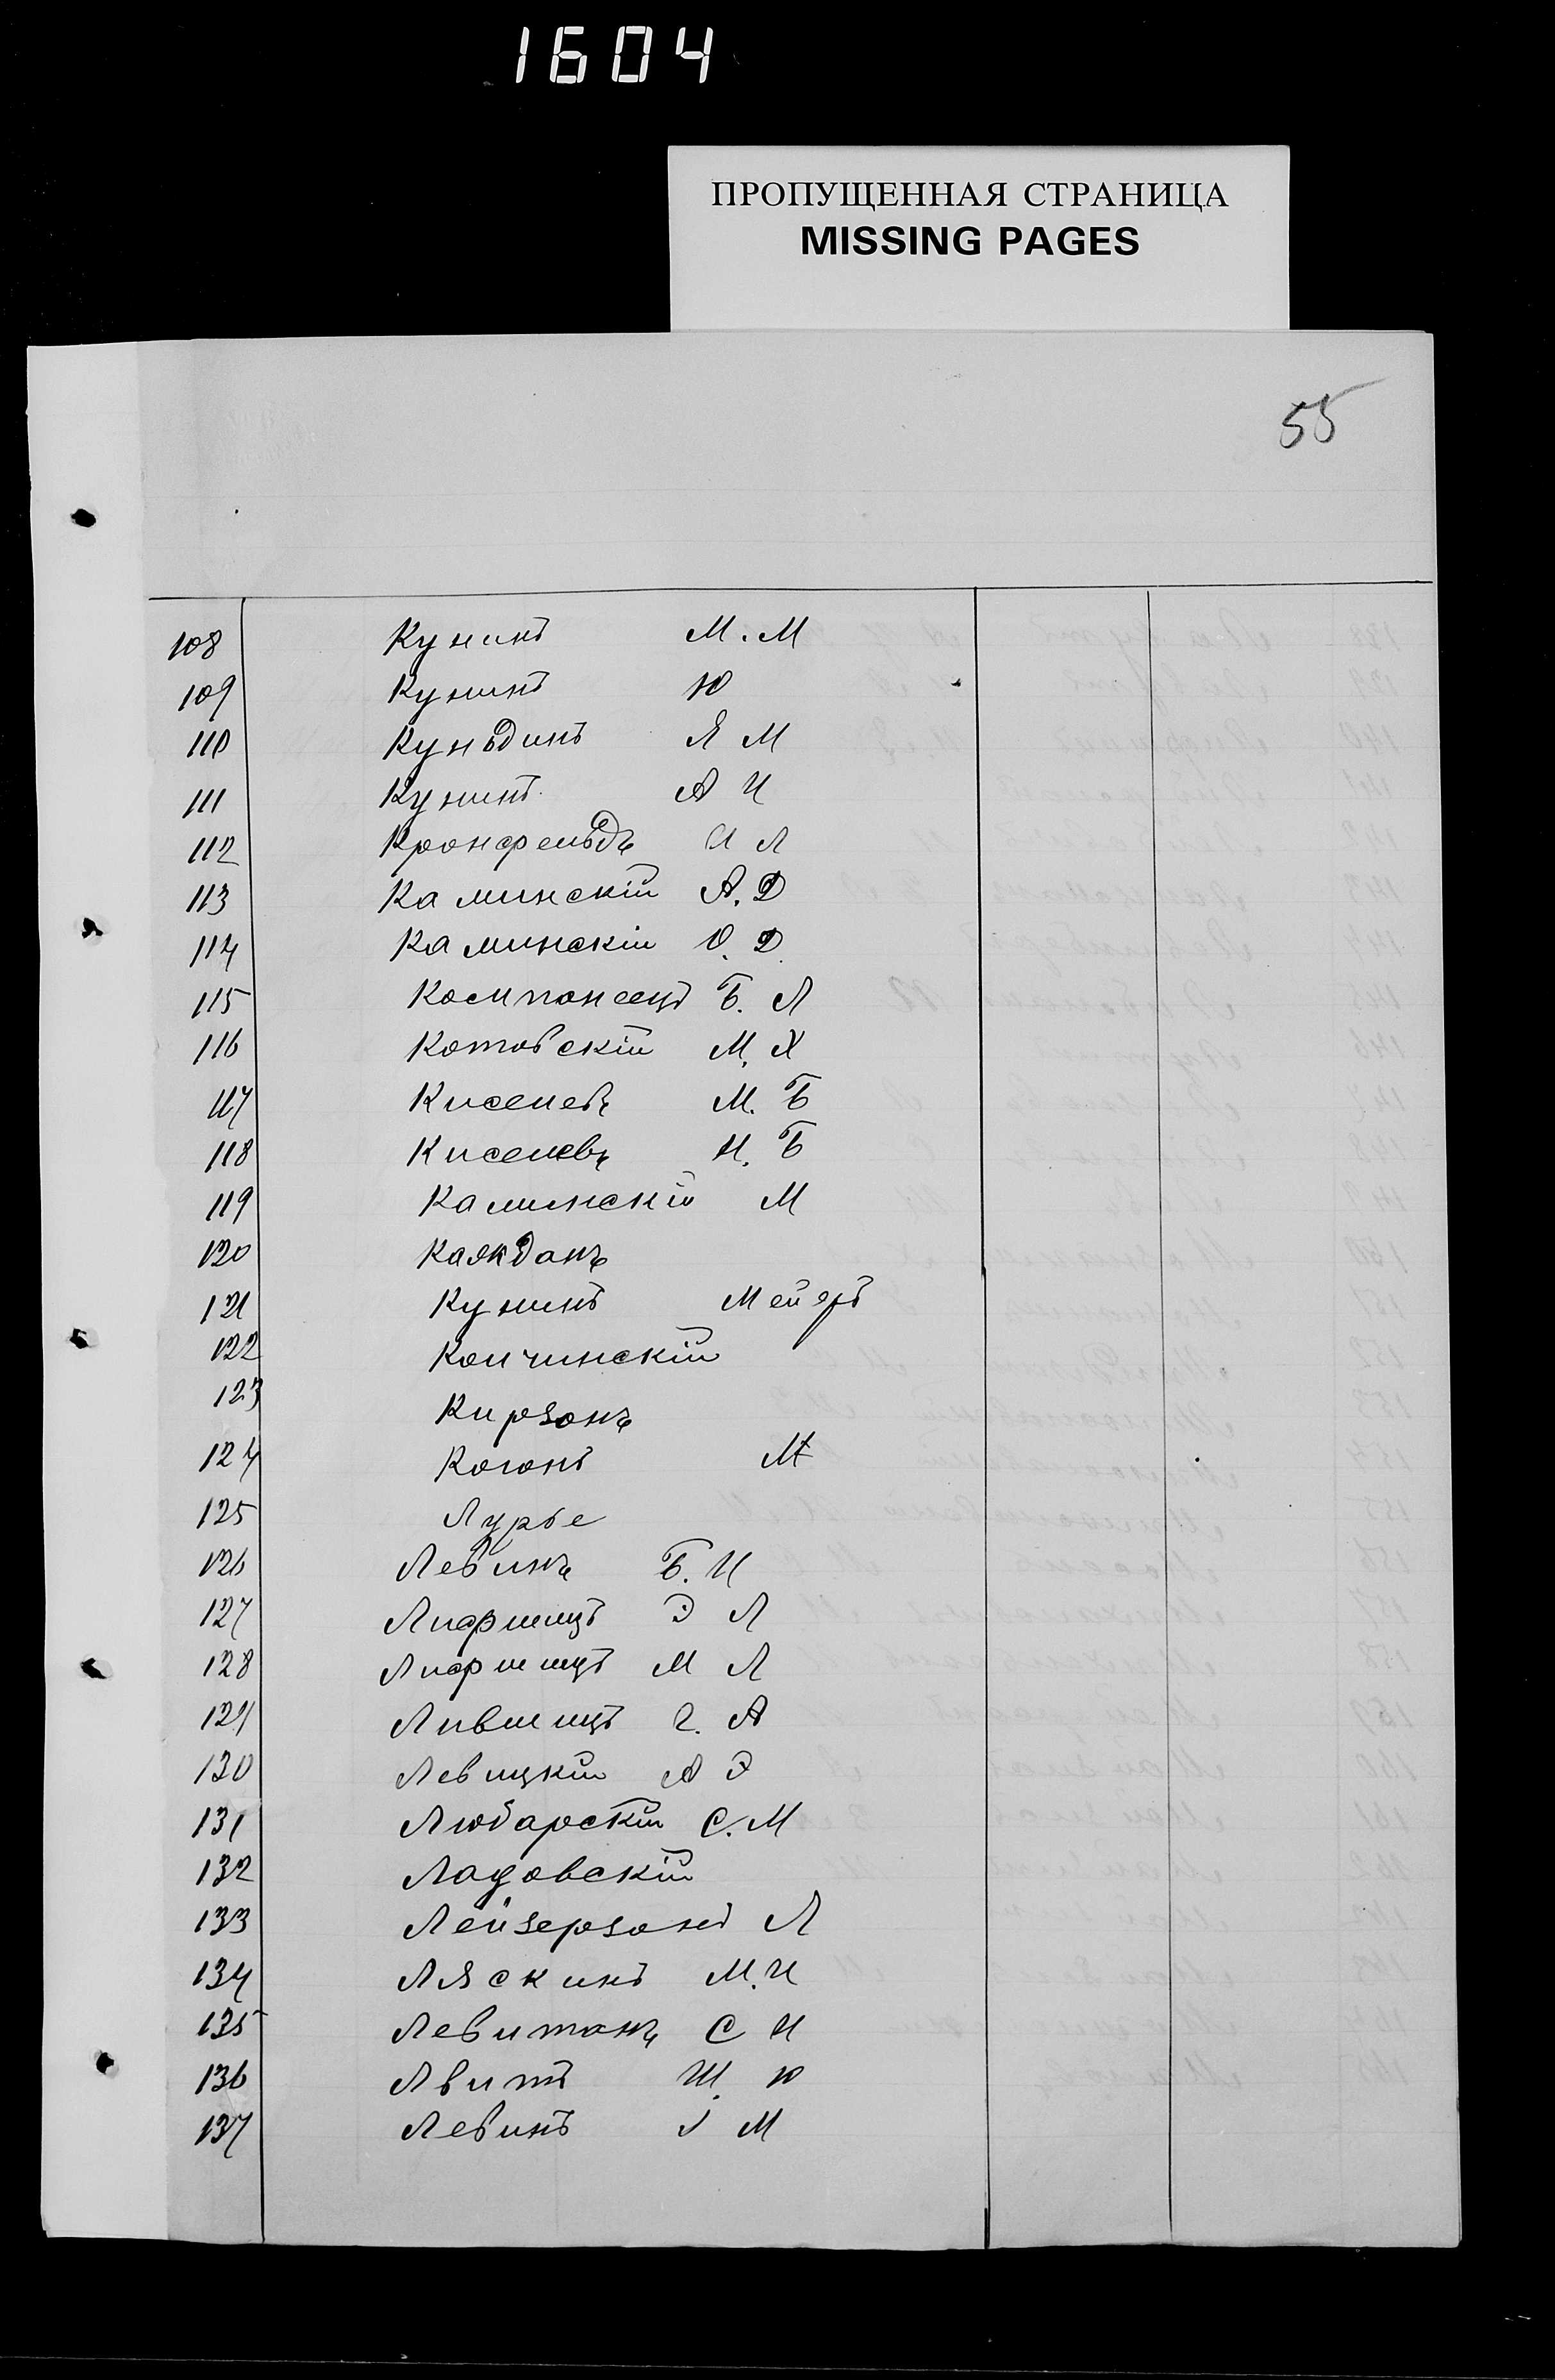 1604
ПРОПУЩЕННАЯ СТРАНИЦА
MISSING PAGES
55
108 Кунинъ М. М
109 Кунинъ Ю
110 Куньдинъ Я М
111 Кунинъ А И
112 Кронфельдъ И Л
113 Каминскій А. Д
114 Каминскій О. Д
115 Компонеецъ Б. Л
116 Котовскій М. Х
117 Киселевъ М. Б
118 Киселевъ И. Б
119 Калинскій М
120 Каждонъ
121 Кунинъ Мейеръ
122 Копчинскій
123 Кирзонъ
124 Когонъ М
125 Лурье
126 Левинъ Б. И
127 Лифшицъ Э Л
128 Лифшицъ М Л
129 Лившицъ Г. А
130 Левицкій А Э
131 Любарскій С. М
132 Ладовскій
133 Лейзерзонъ Л
134 Ляскинъ М. И
135 Левитонъ С И
136 Лвитъ Ш. Ю
137 Левинъ М